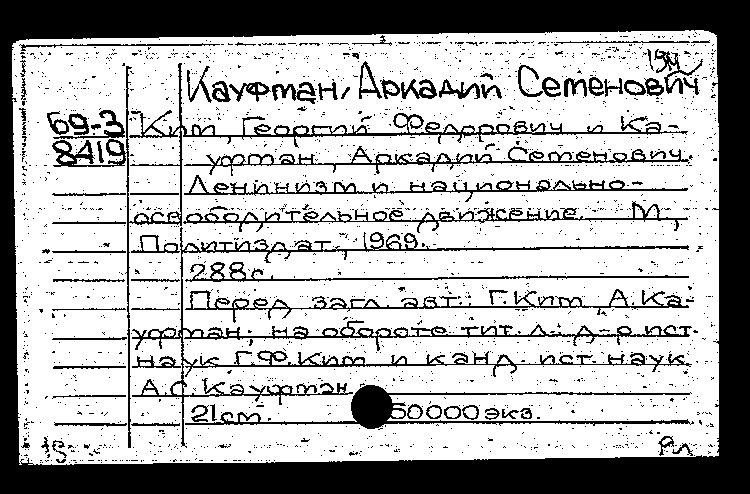 Кауфман, Аркадий Семенович
69-3
8419
Ким, Георгий Федорович и Ка-
уфман, Аркадий Семенович.
Ленинизм и национально-
освободительное движение. М.,
Политиздат, 1969.
288с.
Перед загл. авт.: Г.Ким, А.Ка-
уфман; на обороте тит. л.: д-р ист.
наук Г.Ф.Ким и канд. ист. наук
А.С.Кауфман
21см. 50000экз.